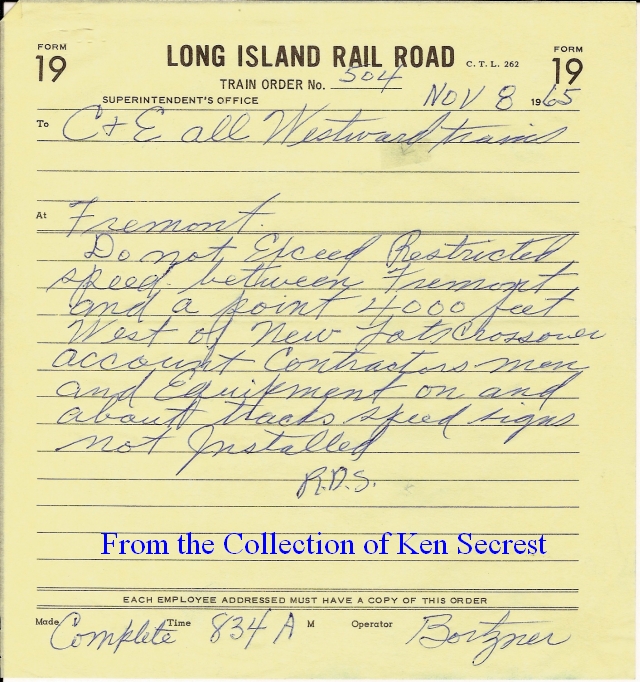 FORM 19 LONG ISLAND RAIL ROAD C. T. L. 262 FORM 19
TRAIN ORDER No. 504
Nov 8 1965
SUPERINTENDENT'S OFFICE
To C+E all Westward trains
At Fremont.
Do not Exceed Restricted
speed between Fremont
and a point 4000 feet
West of New Lots Crossover
account Contractors men
and Equipment on and
about tracks speed signs
not Installed
R.D.S.
From the Collection of Ken Secrest
EACH EMPLOYEE ADDRESSED MUST HAVE A COPY OF THIS ORDER
Made Complete Time 834 A M Operator Bortzner